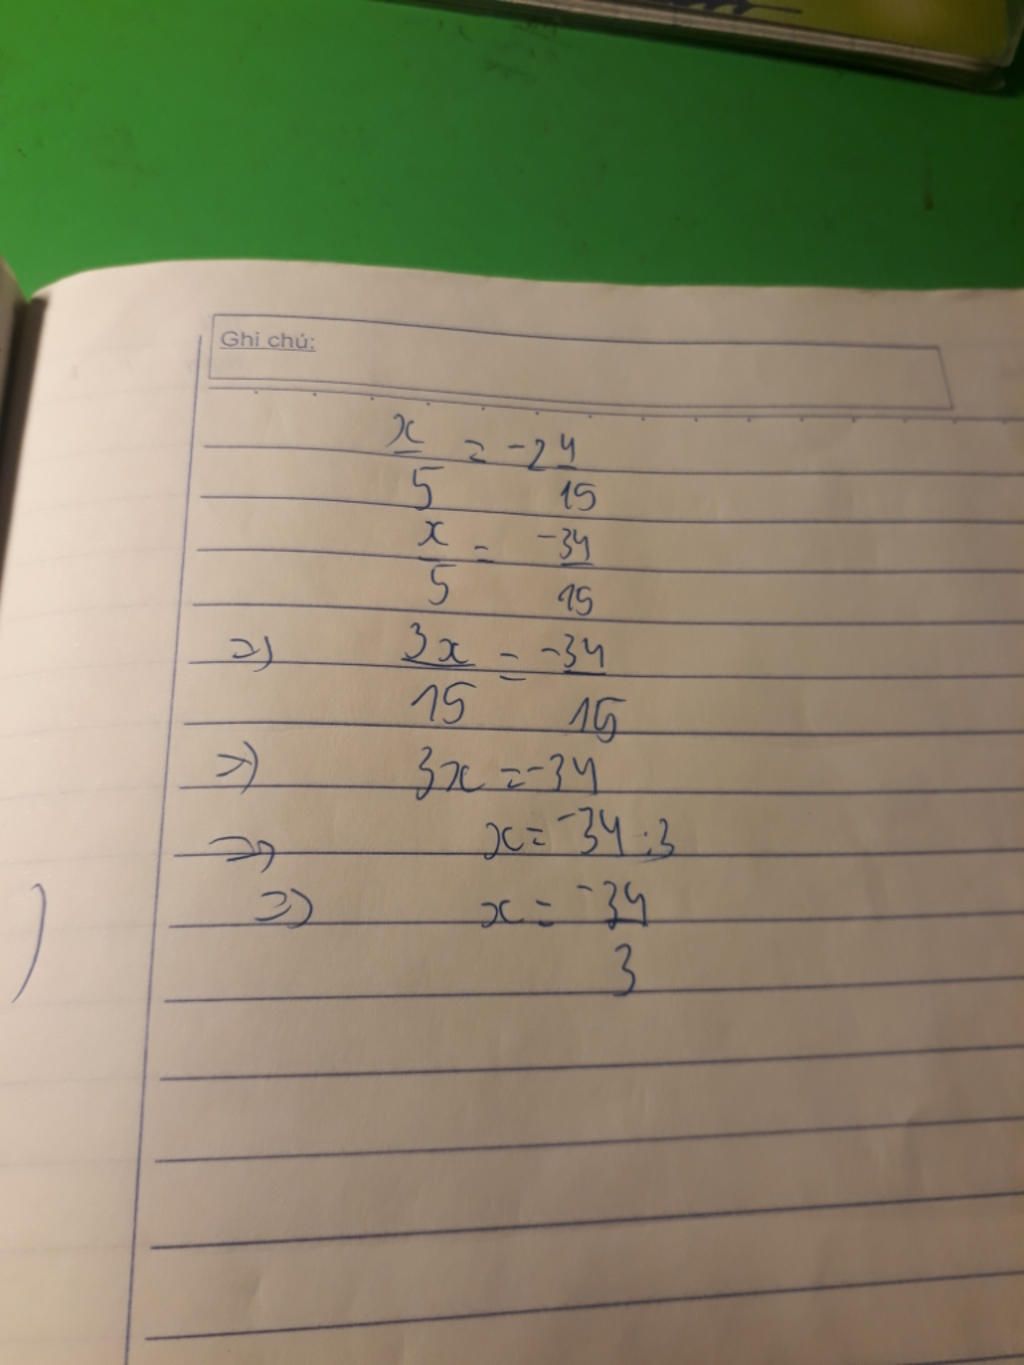 Ghi chú:
x/5 = -2 4/15
x/5 = -34/15
=> 3x/15 = -34/15
=> 3x = -34
=> x = -34 : 3
=> x = -34/3